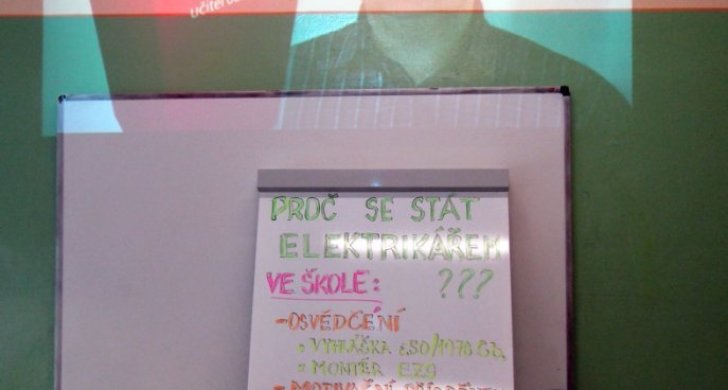 PROČ SE STÁT
ELEKTRIKÁŘEM
VE ŠKOLE: ???
-OSVĚDČENÍ
VYHLÁŠKA č.50/1978 Sb.
MONTÉR EZS